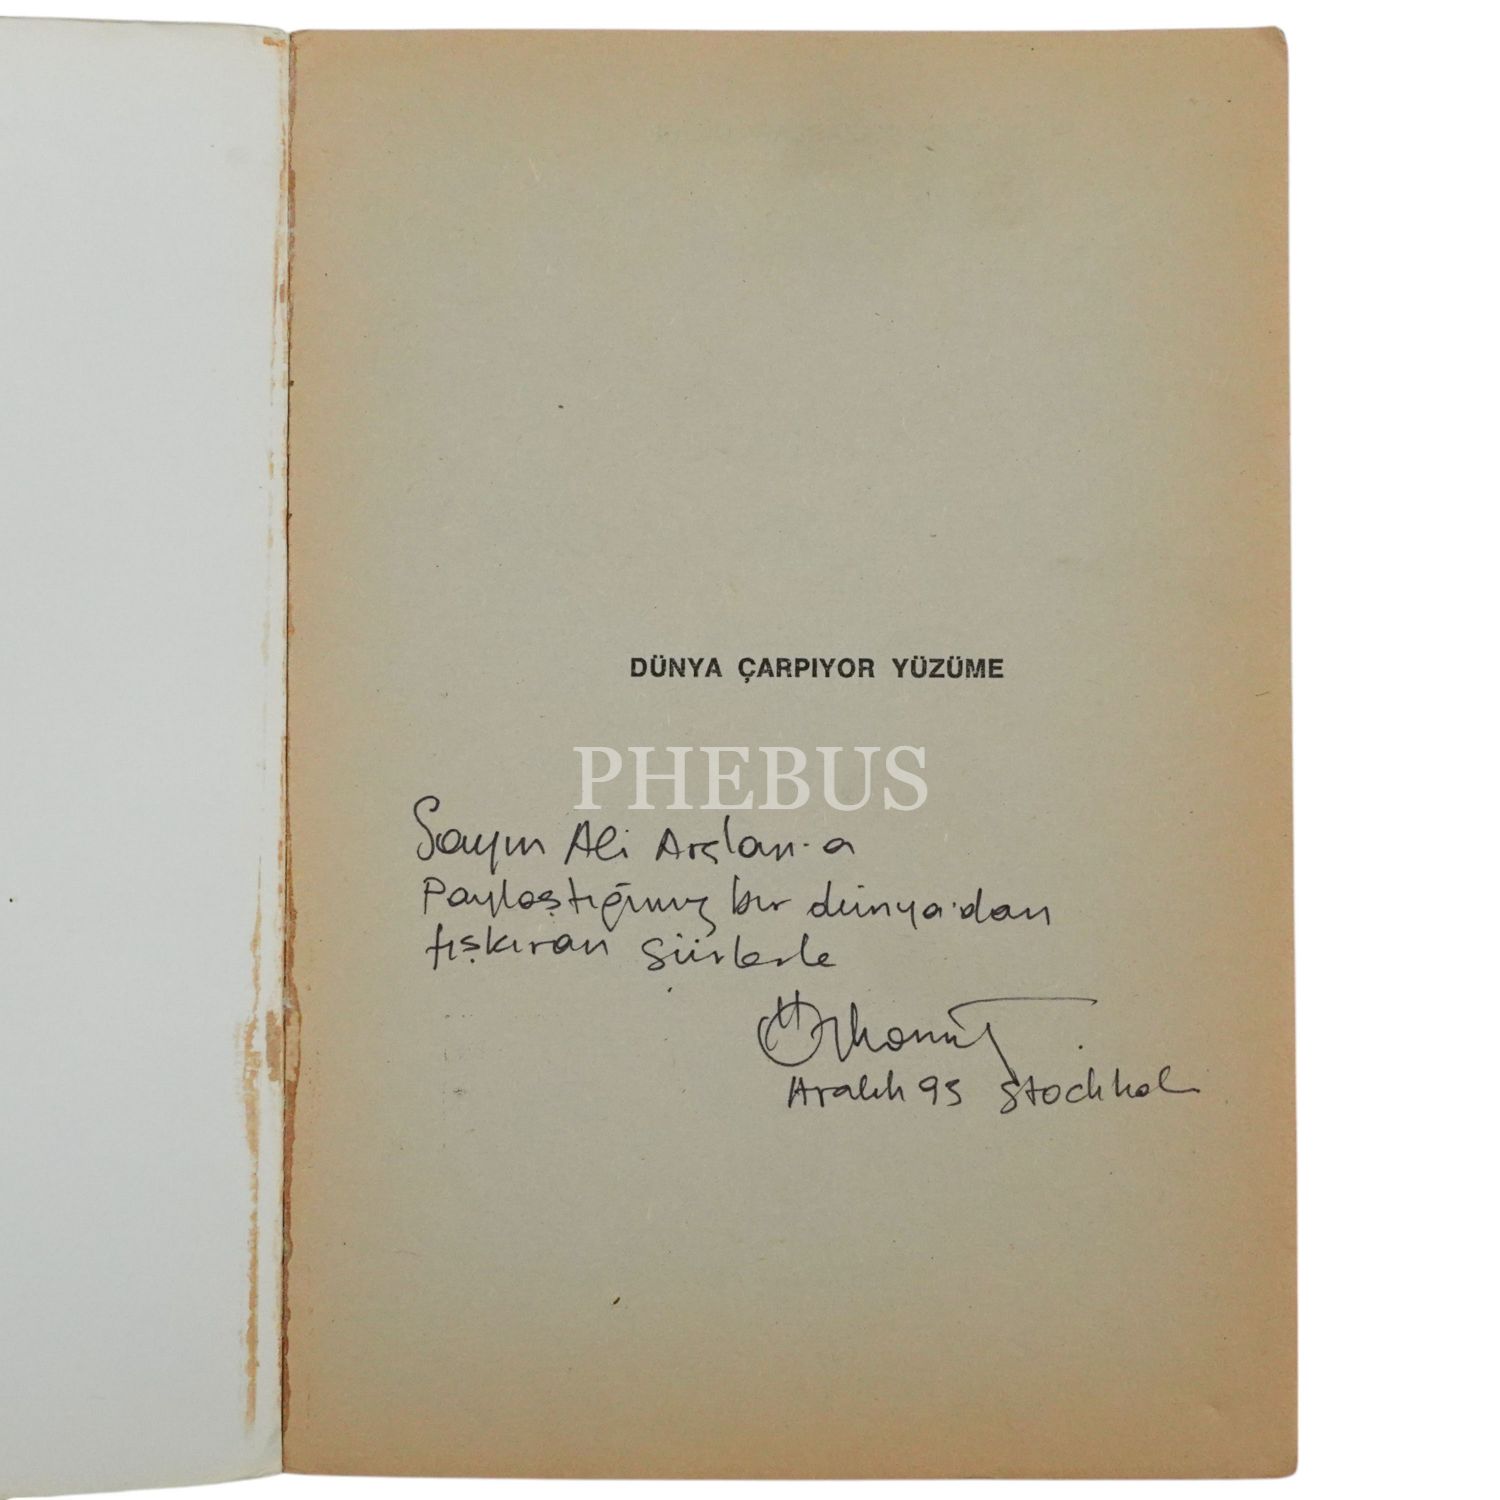 DÜNYA ÇARPIYOR YÜZÜME
PHEBUS
Sayın Ali Arslan'a
Paylaştığımız bir dünya'dan
fışkıran şiirlerle
Aralık 95 Stockhol